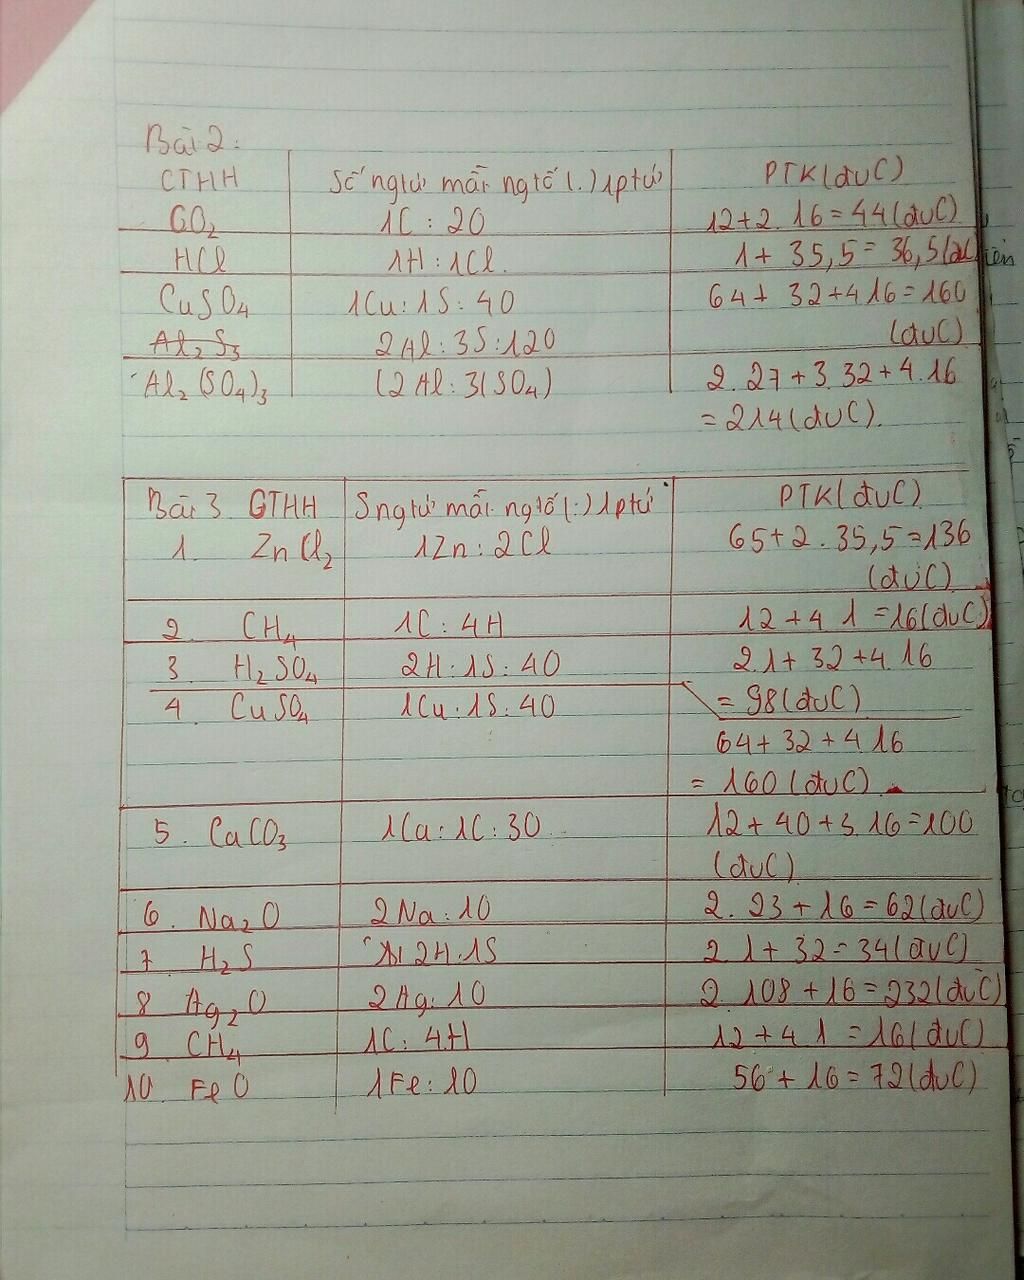 Bài 2:
CTHH Số ngtử mỗi ngtố (.) 1ptử PTK(đvC)
CO₂ 1C : 2O 12+2.16=44(đvC)
HCl 1H:1Cl. 1+ 35,5= 36,5(đvC
CuSO₄ 1Cu:1S:4O 64+ 32+4 16=160
(đvC)
Al₂S₃ 2Al:3S:12O
Al₂(SO₄)₃ (2Al:3(SO₄) 2.27+3.32+4.16
=214(đvC).
Bài 3 CTHH Sngtử mỗi ngtố (.) 1ptử PTK(đvC)
1. ZnCl₂ 1Zn:2Cl 65+2.35,5=136
(đvC)
2. CH₄ 1C:4H 12+4 1 =16(đvC)
3 H₂SO₄ 2H:1S:4O 2.1+ 32+4.16
= 98(đvC)
4. CuSO₄ 1Cu:1S:4O
64+ 32+4 16
= 160 (đvC)
5. CaCO₃ 1Ca:1C:3O 12+ 40+3.16=100
(đvC)
6. Na₂O 2Na:1O 2.23+16=62(đvC)
7 H₂S 2H.1S 2.1+ 32=34(đvC)
8 Ag₂O 2Ag:1O 2.108+16=232(đvC)
9 CH₄ 1C:4H 12+4 1 =16(đvC)
10 FeO 1Fe:1O 56+16=72(đvC)